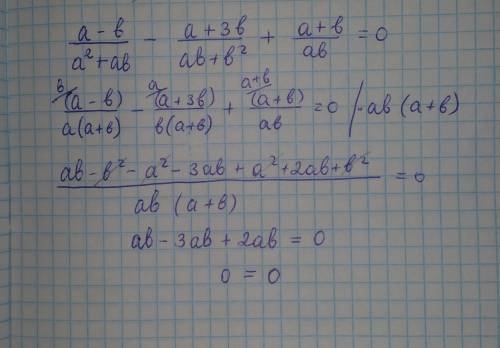 (a - b)/(a² + ab) - (a + 3b)/(ab + b²) + (a + b)/(ab) = 0
b/(a - b)/(a(a + b)) - a/(a + 3b)/(b(a + b)) + a + b/(a + b)/(ab) = 0 /· ab (a + b)
(ab - b² - a² - 3ab + a² + 2ab + b²)/(ab (a + b)) = 0
ab - 3ab + 2ab = 0
0 = 0